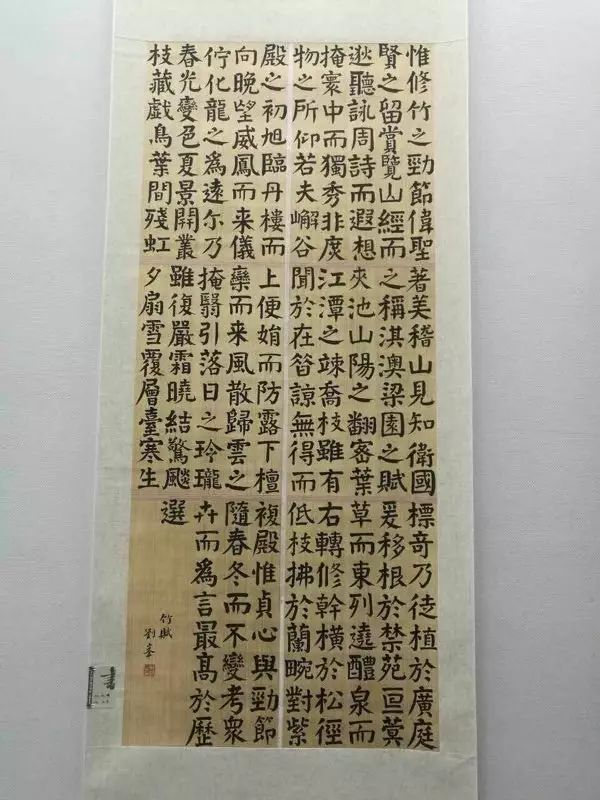 惟修竹之勁節偉聖
賢之留賞覽山經而
逖聽詠周詩而遐想
掩寰中而獨秀非庶
物之所仰若夫嶰谷
著美稽山見知衛國
之稱淇澳梁園之賦
夾池山陽之翻密葉
江潭之竦喬枝雖有
聞於在昔諒無得而
標奇乃徒植於廣庭
爰移根於禁苑亘蓂
草而東列邅醴泉而
右轉修幹橫於松徑
低枝拂於蘭畹對紫
殿之初旭臨丹樓而
向晚望威鳳而来儀
佇化龍之為遠尓乃
春光變色夏景開叢
枝藏戲鳥葉間殘虹
上便娟而防露下檀
欒而来風散歸雲之
掩翳引落日之玲瓏
雖復嚴霜曉結驚飈
夕扇雪覆層臺寒生
複殿惟貞心與勁節
隨春冬而不變考衆
卉而為言最高於歷
選
竹賦
劉峯